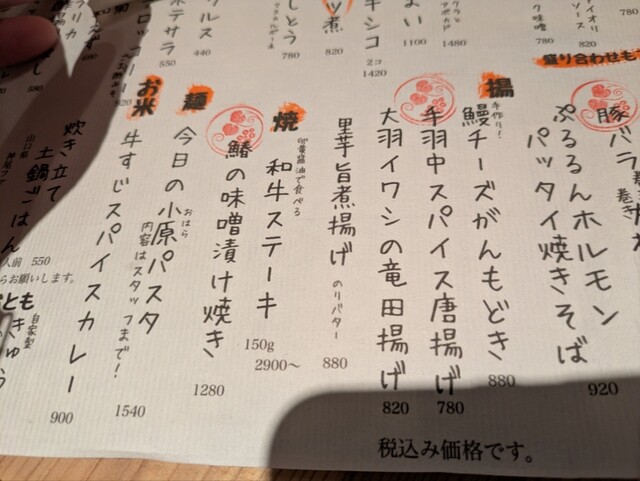 780
820
1100
1480
820
キシコ
2コ
1420
780
440
ポテサラ
550
盛り合わせも
豚バラ
ぷるるんホルモン
パッタイ焼きそば
920
揚
手作り!
鰻チーズがんもどき
880
手羽中スパイス唐揚げ
780
大羽イワシの竜田揚げ
820
里芋旨煮揚げ
のりバター
880
焼
卵黄醤油で食べる
和牛ステーキ
150g
2900〜
鰆の味噌漬け焼き
1280
麺
おはら
今日の小原パスタ
内容はスタッフまで!
1540
お米
牛すじスパイスカレー
900
炊き立て
土鍋ごはん
山口県
人前 550
らお願いします。
とも
自家製
きゅう
税込み価格です。